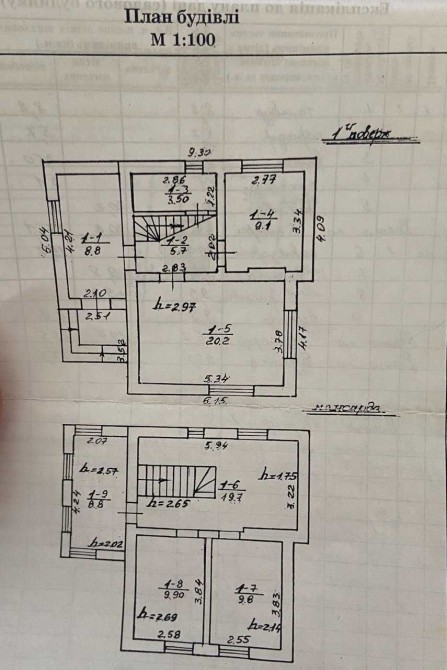 План будівлі
М 1:100
1й поверх
9.30
2.86
1-3
3.50
1.22
2.77
1-4
9.1
3.34
4.09
5.04
4.21
1-1
8.8
1-2
5.7
2.02
2.83
2.10
2.51
3.53
h=2.97
1-5
20.2
3.78
4.17
5.34
6.15
мансарда
2.07
5.94
h=2.57
4.24
1-9
8.8
h=2.02
h=2.65
1-6
19.7
h=1.75
3.22
1-8
9.90
3.84
h=2.69
2.58
1-7
9.8
3.83
h=2.14
2.55